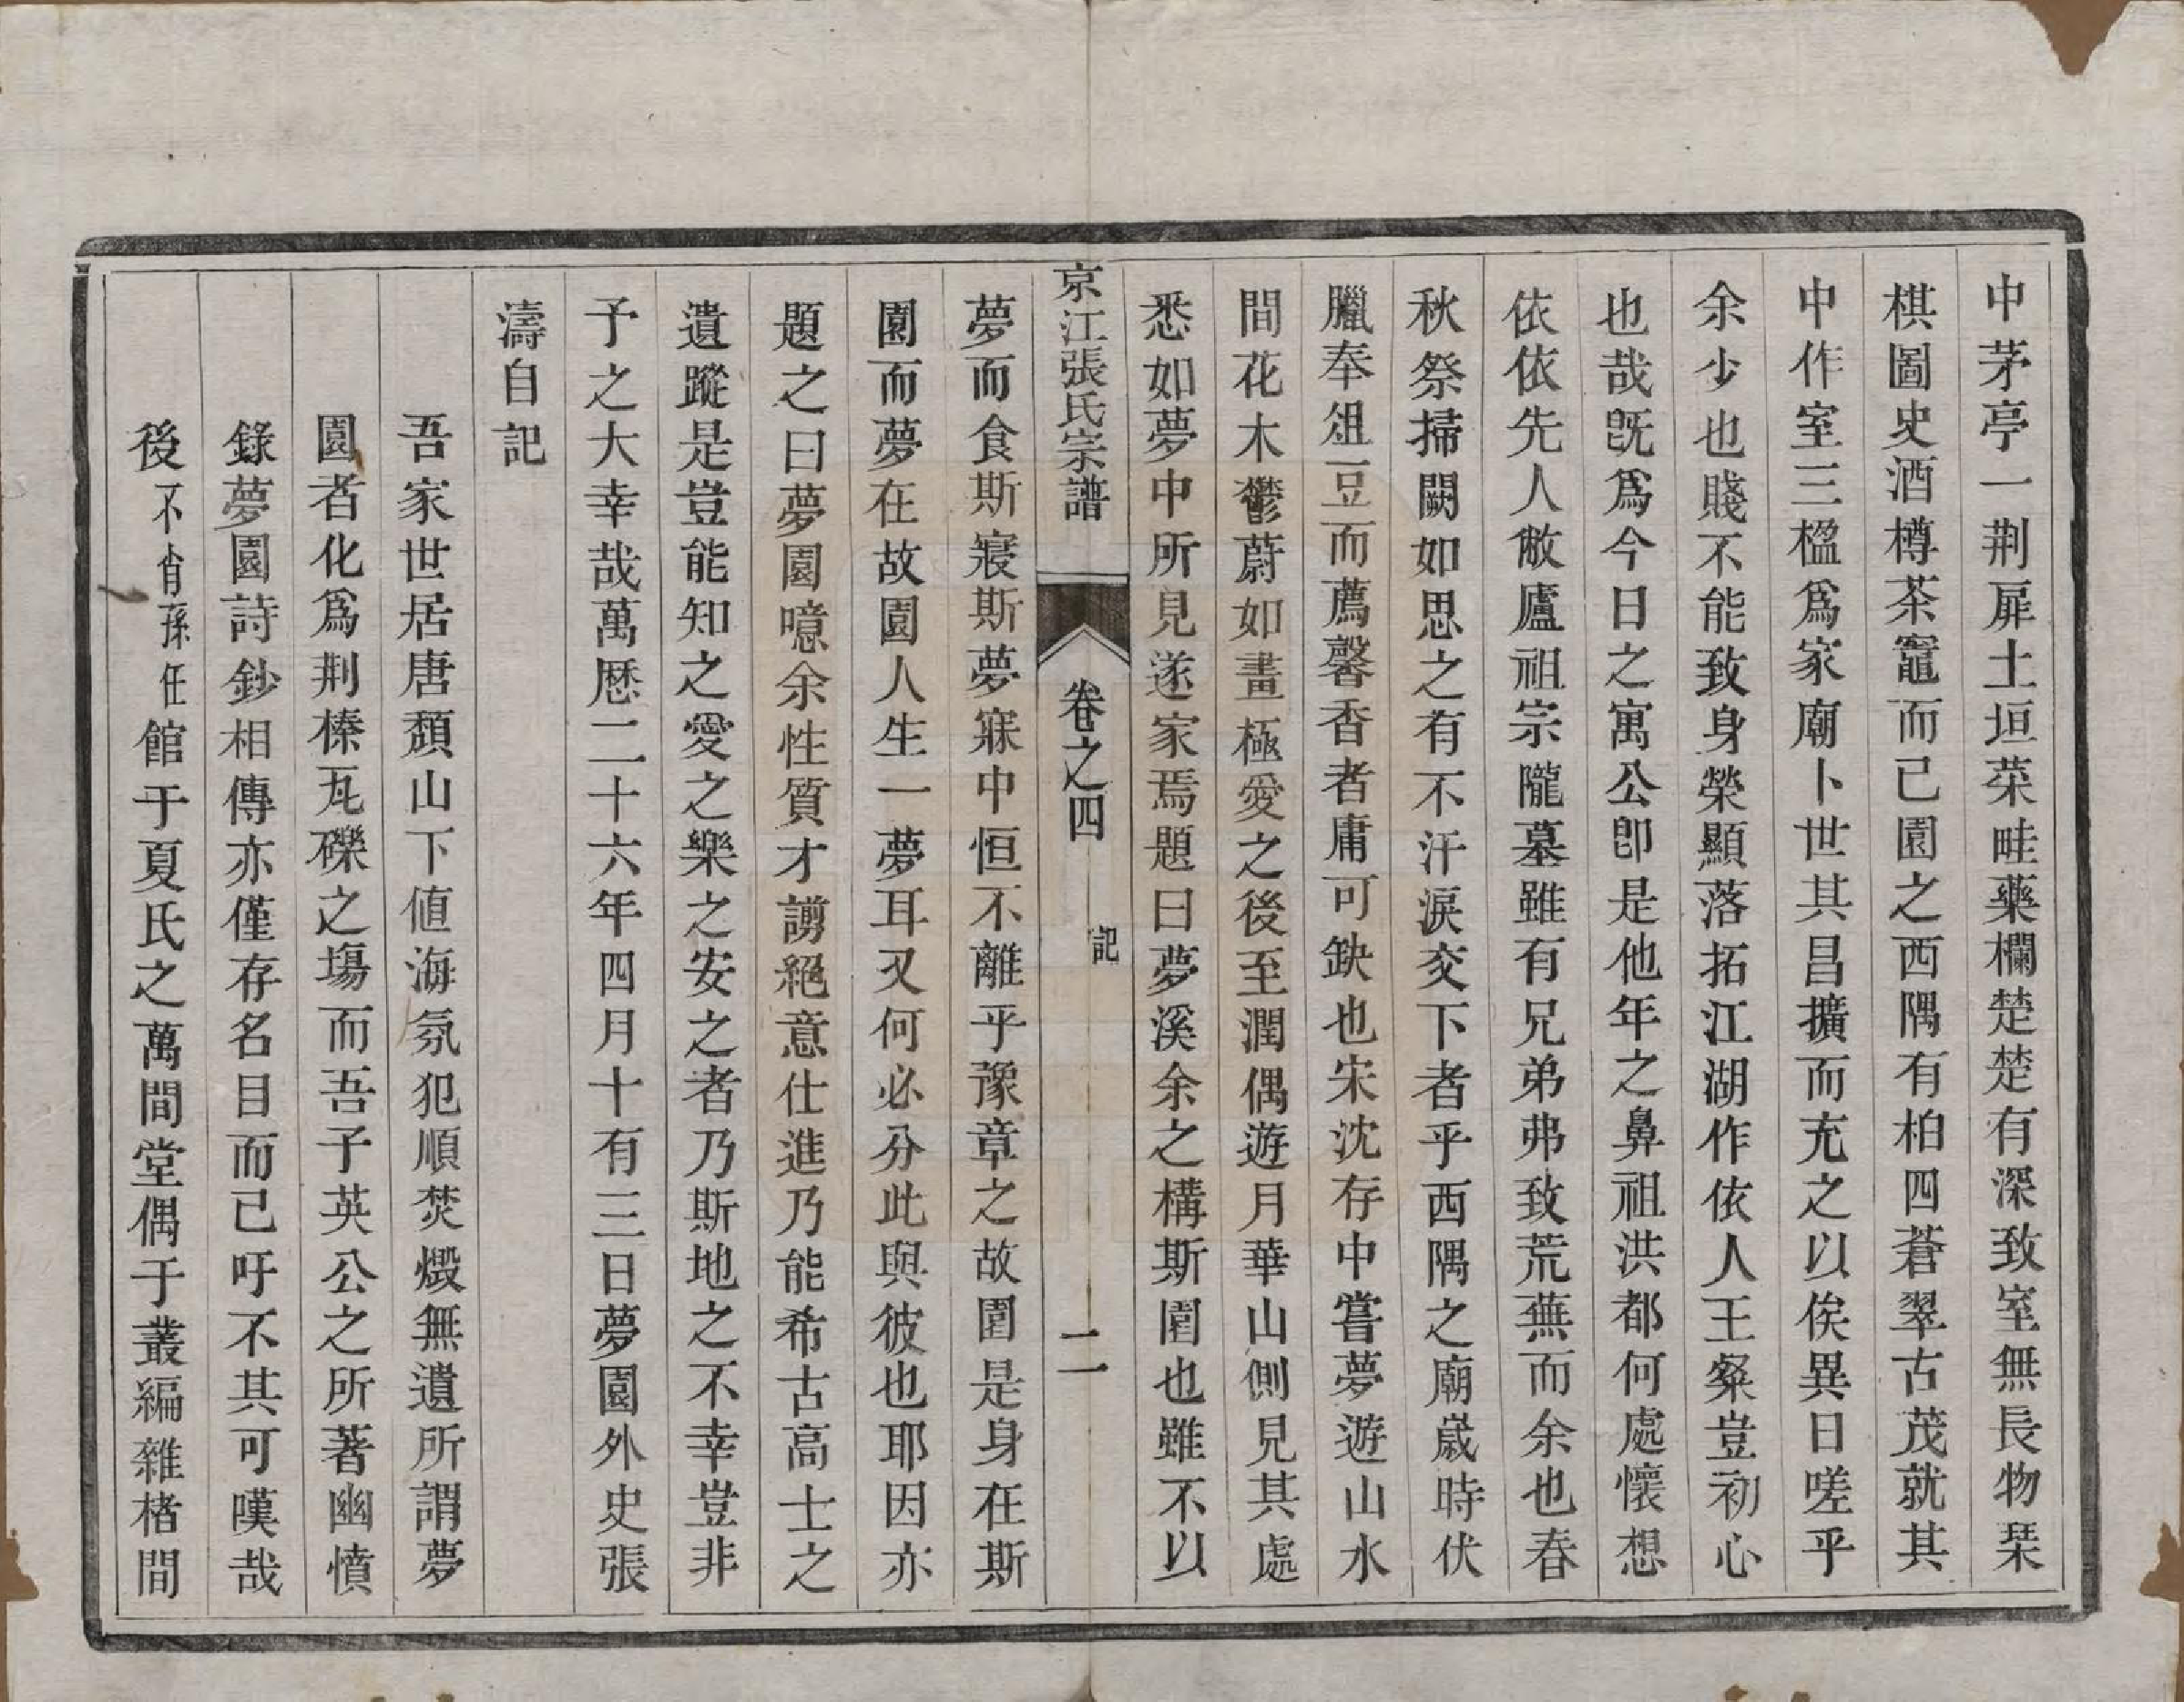 中茅亭一荆扉土垣菜畦藥欄楚楚有深致室無長物琹
棋圖史酒樽茶竈而已園之西隅有柏四蒼翠古茂就其
中作室三楹爲家廟卜世其昌擴而充之以俟異日嗟乎
余少也賤不能致身榮顯落拓江湖作依人王粲豈初心
也哉旣爲今日之寓公卽是他年之鼻祖洪都何處懷想
依依先人敝廬祖宗隴墓雖有兄弟弗致荒蕪而余也春
秋祭掃闕如思之有不汗淚交下者乎西隅之廟嵗時伏
臘奉俎豆而薦馨香者庸可缺也宋沈存中嘗夢遊山水
間花木鬱蔚如畫極愛之後至潤偶遊月華山側見其處
悉如夢中所見遂家焉題曰夢溪余之構斯園也雖不以
京江張氏宗譜 卷之四 記 二
夢而食斯寢斯夢寐中恒不離乎豫章之故園是身在斯
園而夢在故園人生一夢耳又何必分此與彼也耶因亦
題之曰夢園噫余性質才譾絕意仕進乃能希古高士之
遺蹤是豈能知之愛之樂之安之者乃斯地之不幸豈非
予之大幸哉萬厯二十六年四月十有三日夢園外史張
濤自記
吾家世居唐頹山下値海氛犯順焚燬無遺所謂夢
園者化爲荆榛瓦礫之塲而吾子英公之所著幽憤
錄夢園詩鈔相傳亦僅存名目而已吁不其可嘆哉
後不肖孫任館于夏氏之萬間堂偶于叢編雜楮間